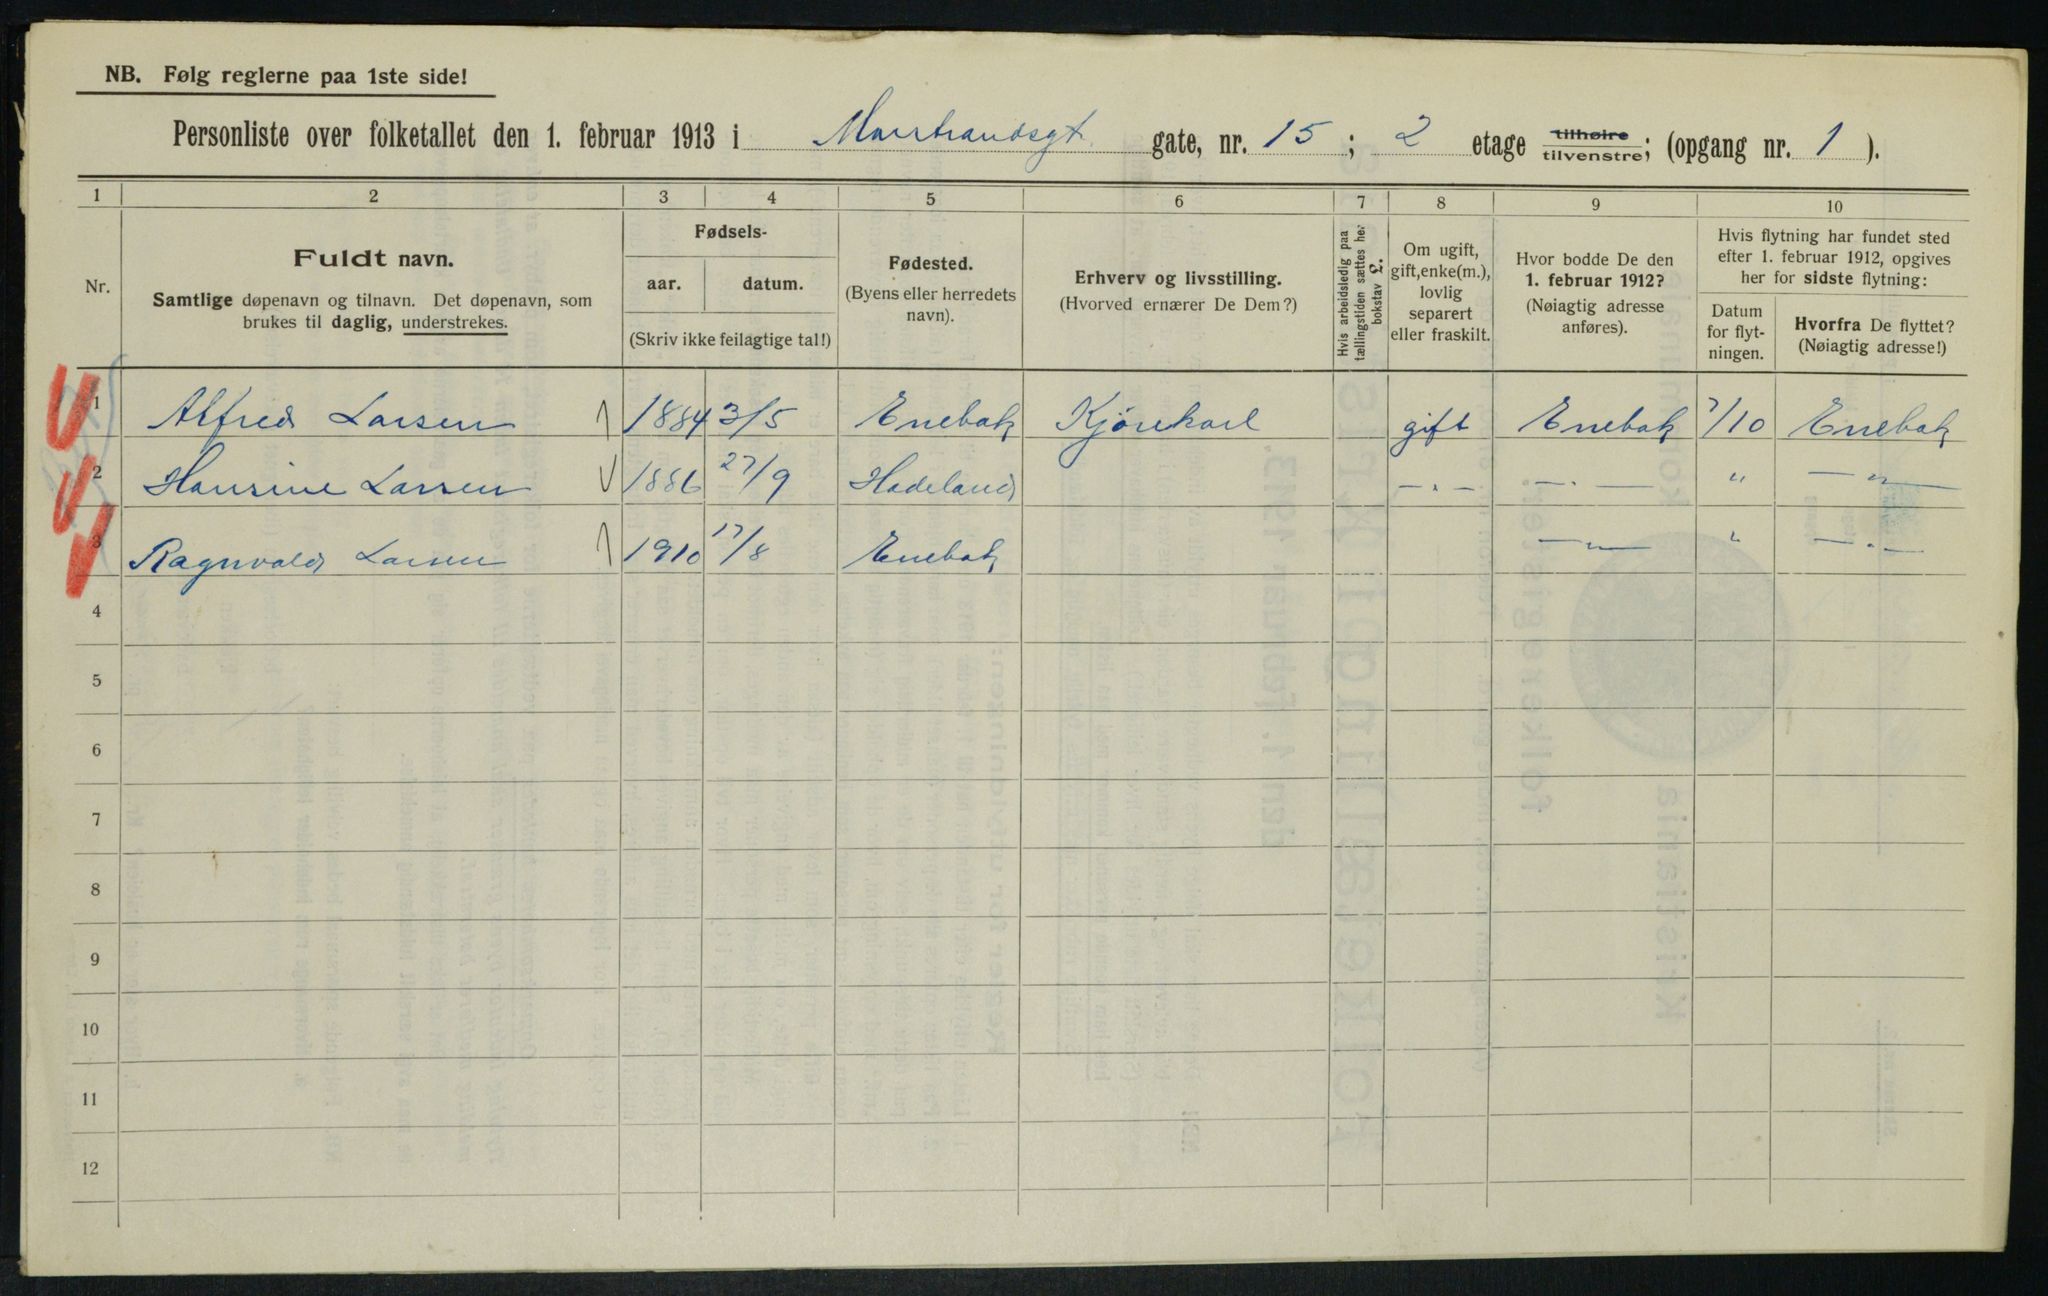 NB. Følg reglerne paa 1ste side!
Personliste over folketallet den 1. februar 1913 i Marstrandsgt gate, nr. 15; 2 etage tilhøire/tilvenstre; (opgang nr. 1).
1 2 3 4 5 6 7 8 9 10
Nr.
Fuldt navn.
Samtlige døpenavn og tilnavn. Det døpenavn, som
brukes til daglig, understrekes.
Fødsels-
aar. datum.
(Skriv ikke feilagtige tal!)
Fødested.
(Byens eller herredets
navn).
Erhverv og livsstilling.
(Hvorved ernærer De Dem?)
Hvis arbeidsledig paa
tællingstiden sættes her
bokstav L.
Om ugift,
gift, enke(m.),
lovlig
separert
eller fraskilt.
Hvor bodde De den
1. februar 1912?
(Nøiagtig adresse
anføres).
Hvis flytning har fundet sted
efter 1. februar 1912, opgives
her for sidste flytning:
Datum
for flyt-
ningen.
Hvorfra De flyttet?
(Nøiagtig adresse!)
1 Alfred Larsen 1884 3/5 Enebak Kjørekarl gift Enebak 7/10 Enebak
2 Hansine Larsen 1886 27/9 Hadeland —"— —"— " —"—
3 Ragnvald Larsen 1910 17/8 Enebak —"— " —"—
4
5
6
7
8
9
10
11
12